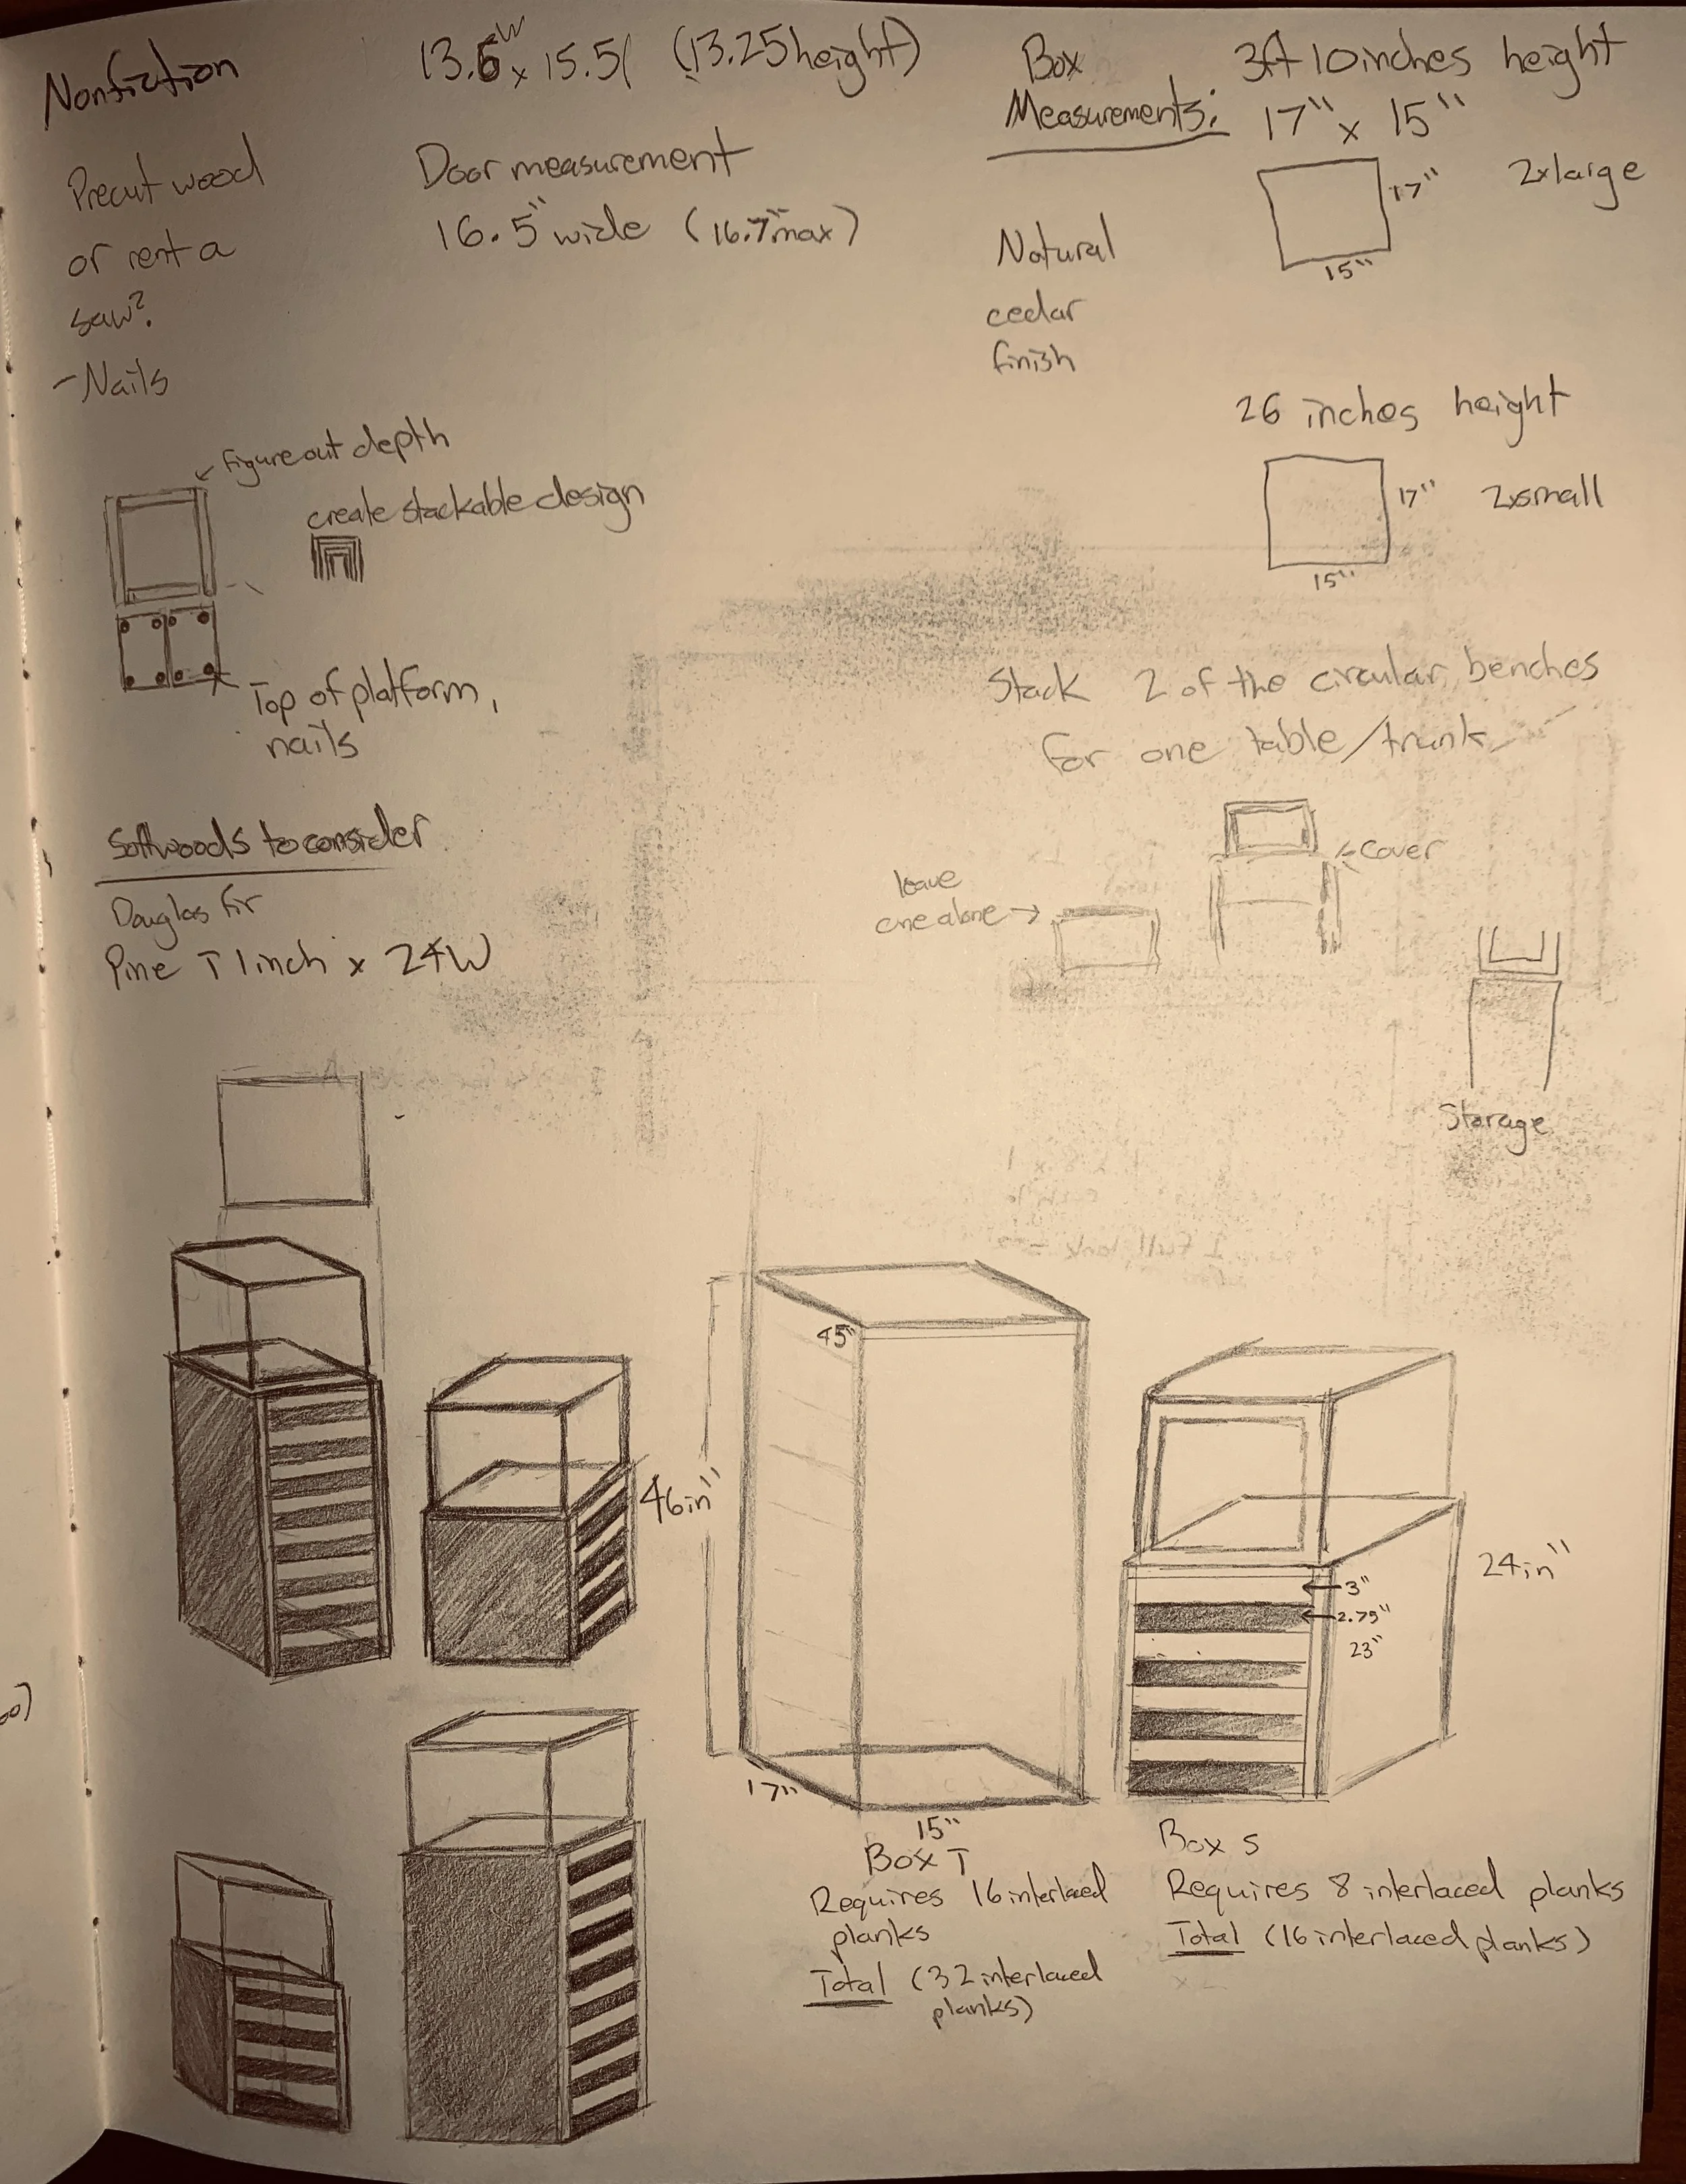 Nonfiction
13.5W x 15.5l (13.25 height)
Precut wood
or rent a
saw?
- Nails
Door measurement
16.5" wide (16.7" max)
Box
Measurements:
3ft 10 inches height
17" x 15"
17"
2x large
15"
Natural
cedar
finish
26 inches height
17"
2x small
15"
figure out depth
create stackable design
Top of platform,
nails
Stack 2 of the circular benches
for one table/trunk
Cover
leave
one alone
Storage
Softwoods to consider
Douglas fir
Pine T 1 inch x 24W
45"
46in"
17"
15"
24in"
3"
2.75"
23"
Box T
Requires 16 interlaced
planks
Total (32 interlaced
planks)
Box S
Requires 8 interlaced planks
Total (16 interlaced planks)